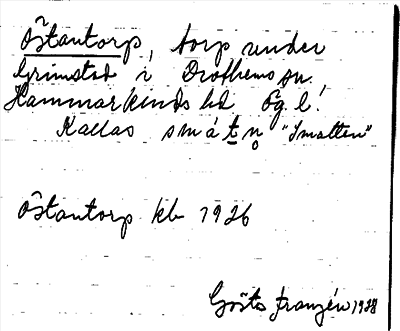 Östantorp, torp under
Grimstad i Drothems sn.
Hammarkinds hd Ög. l.
Kallas småtn̥ "Smatten"
Östantorp kb 1926
Gösta Franzén 1928